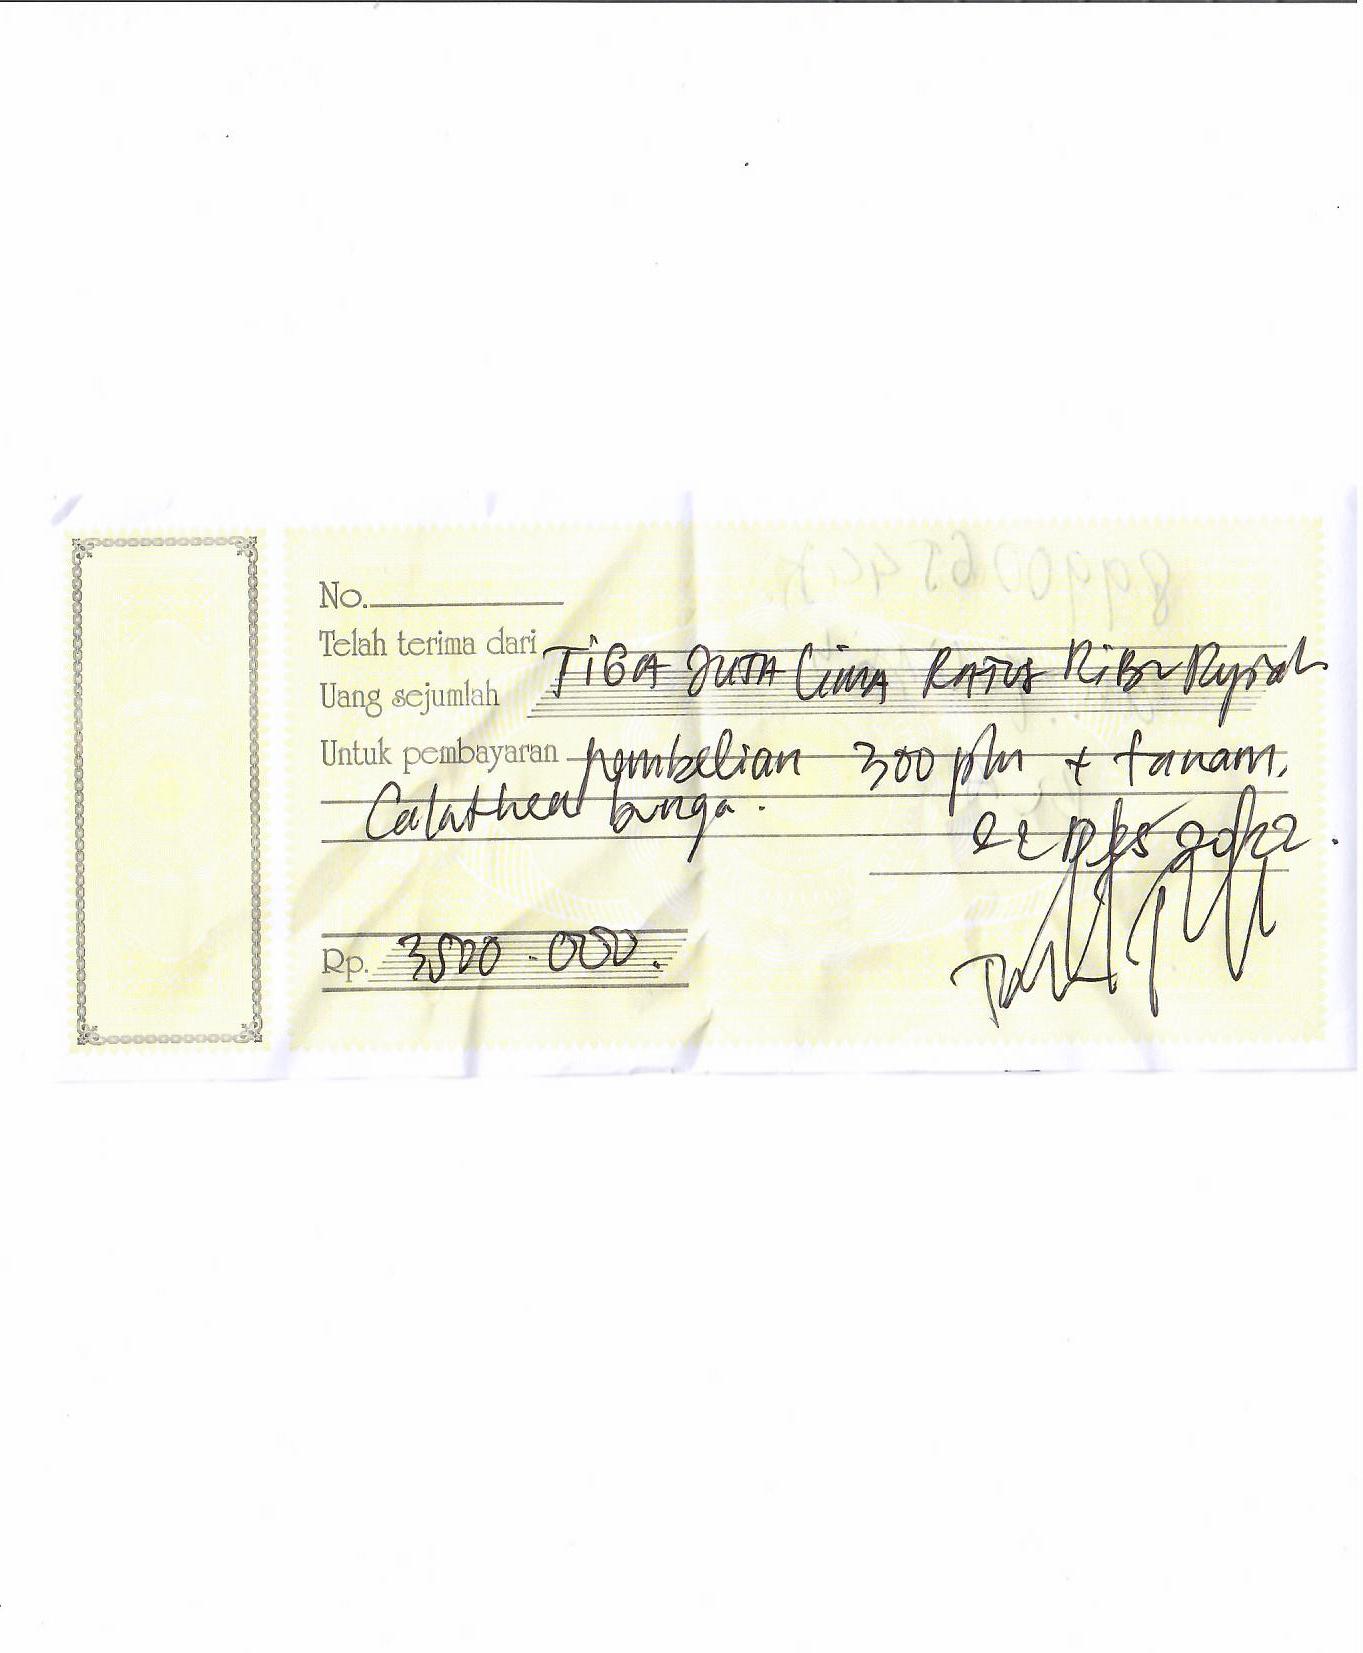 No.
Telah terima dari
Uang sejumlah TiGA JUTA Lima RATUS RiBu Rupiah
Untuk pembayaran pembelian 300 phn + tanam,
Calathea bunga.
22 Des 2022.
Rp. 3500.000.